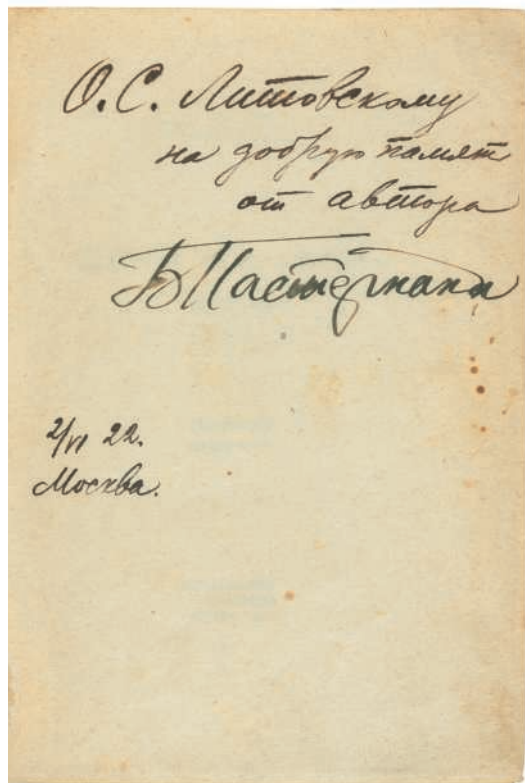 О.С. Литовскому
на добрую памят
от автора
БПастернака
2/VI 22.
Москва.